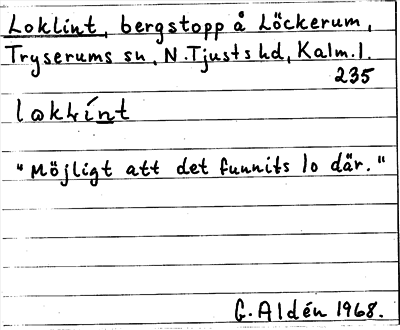 Loklint, bergstopp å Löckerum,
Tryserums sn, N. Tjusts hd, Kalm. l.
235
lωklínt
"Möjligt att det funnits lo där."
G. Aldén 1968.